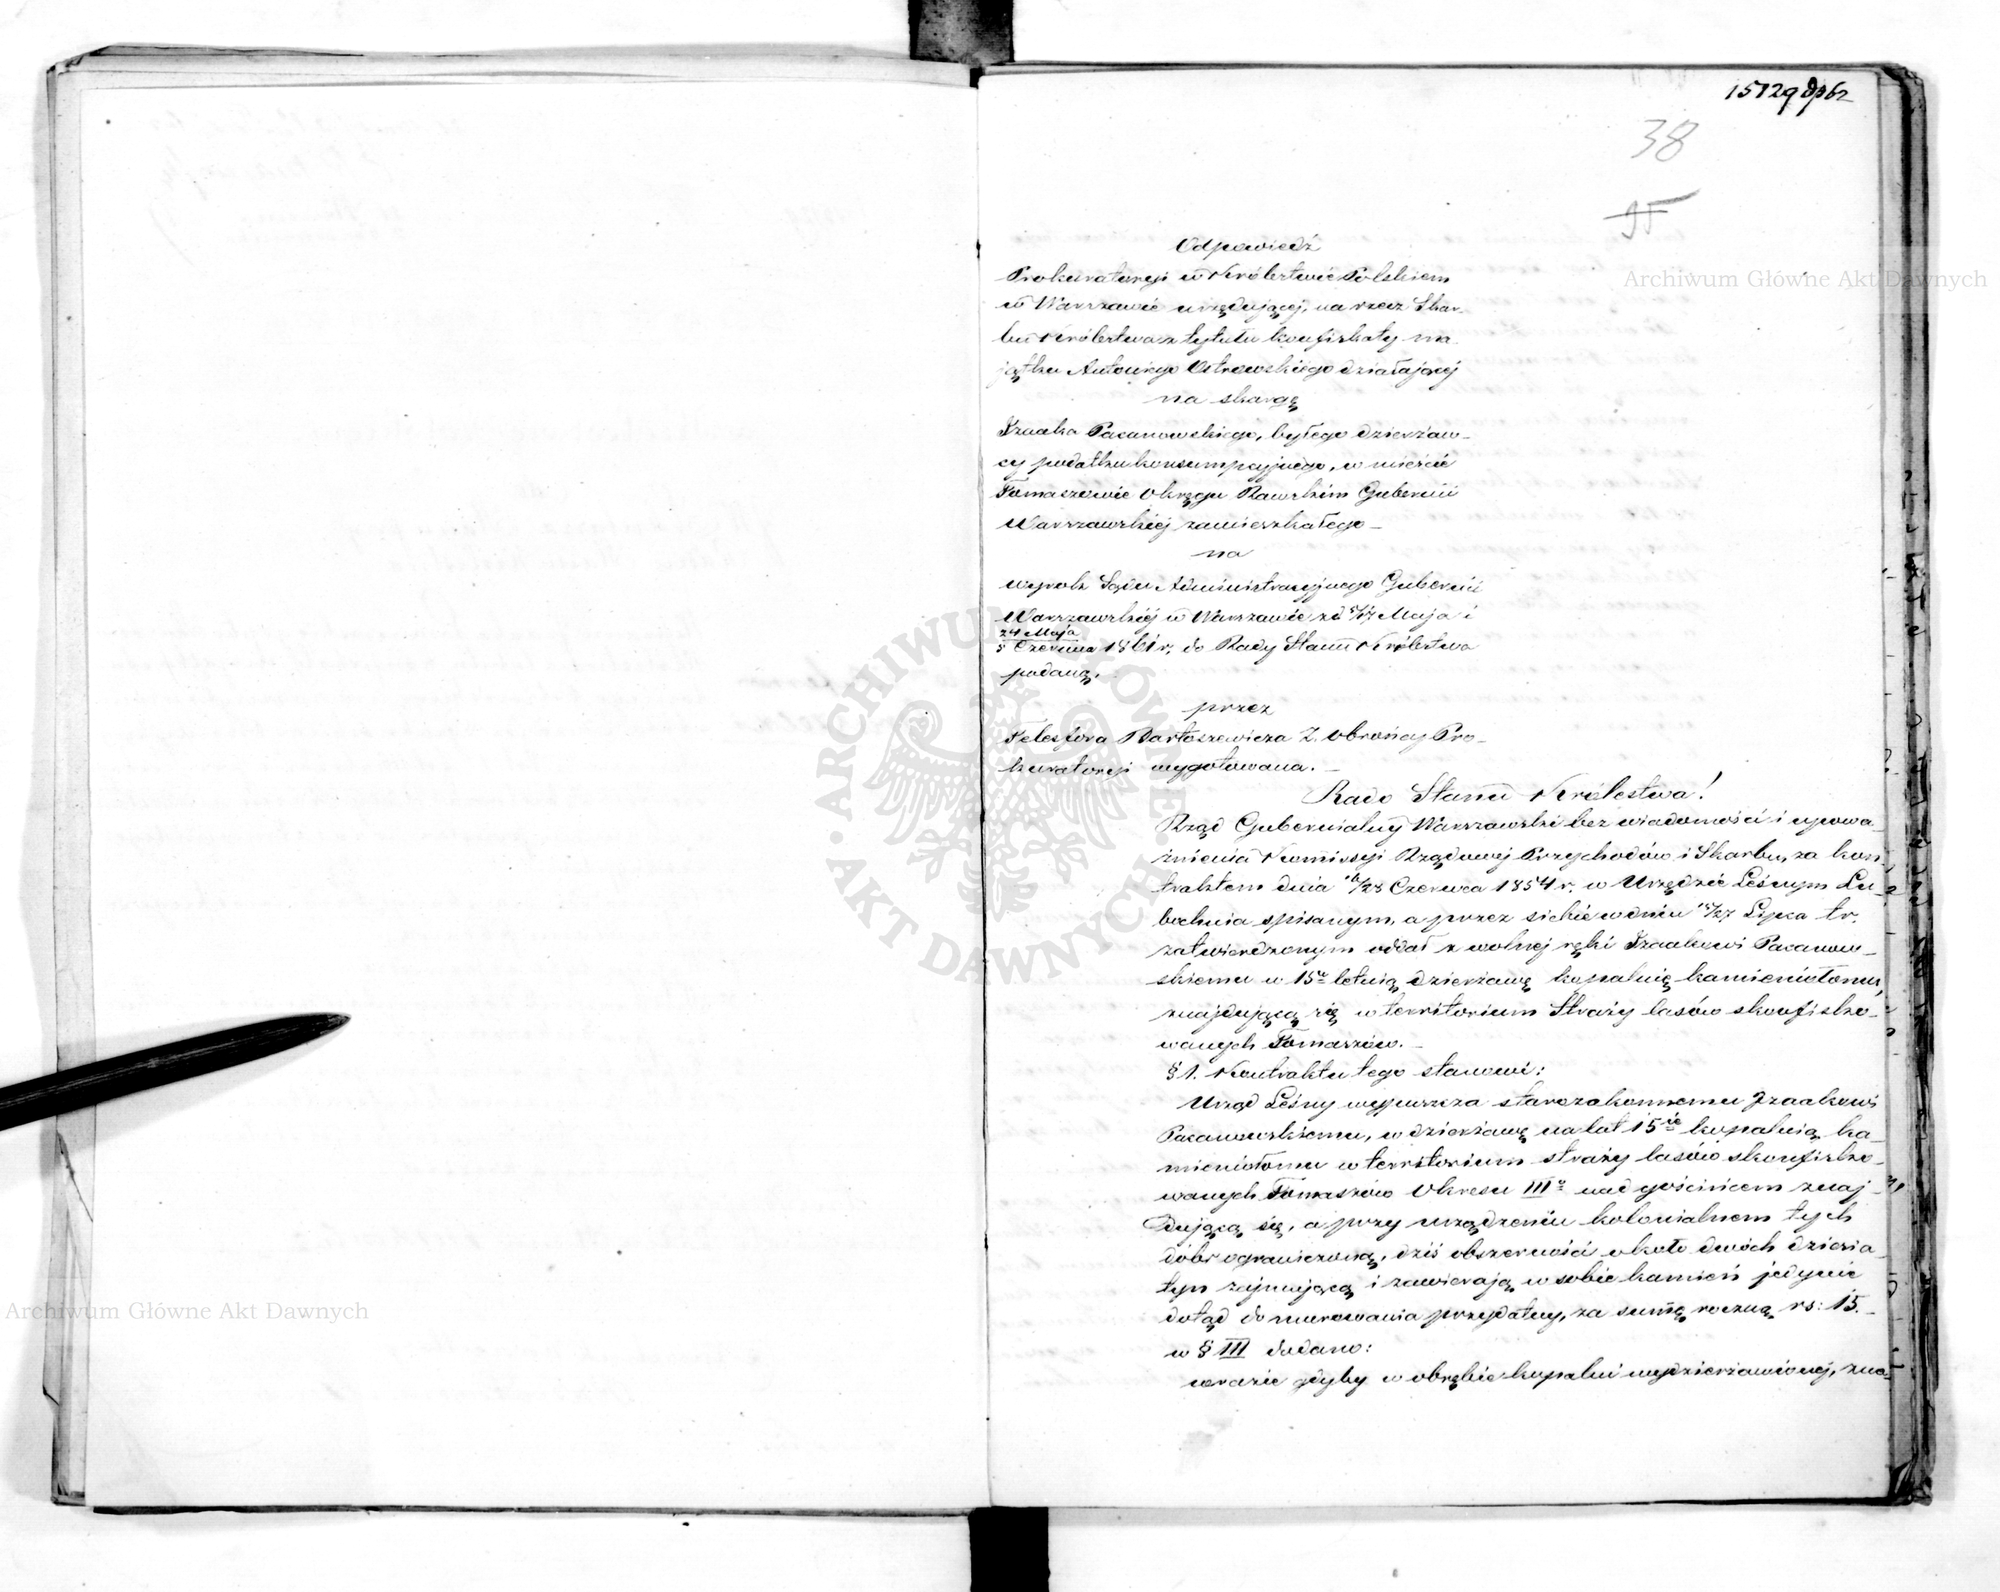 38
95
Archiwum Główne Akt Dawnych
Odpowiedź
Prokuratoryi w Królestwie Polskiem
w Warszawie urzędującej, na rzecz Skar-
bu Królestwa z tytułu konfiskaty ma-
jątku Antoniego Ostrowskiego działającej
na skargę
Izaaka Pacanowskiego, byłego dzierżaw-
cy podatku konsumpcyjnego, w mieście
Tomaszowie Okręgu Rawskim Gubernii
Warszawskiej zamieszkałego –
na
wyrok Sądu Administracyjnego Gubernii
Warszawskiej w Warszawie z d 5/17 Maja i
24 Maja
5 Czerwca 1861 r. do Rady Stanu Królestwa
podaną.
przez
Telesfora Bartoszewicza Z. Obrońcy Pro-
kuratoryi wygotowana. –
Rado Stanu Królestwa!
Rząd Gubernialny Warszawski bez wiadomości i upowa-
żnienia Kommissyi Rządowej Przychodów i Skarbu, za kon-
traktem dnia 16/28 Czerwca 1854 r. w Urzędzie Leśnym Lu-
bochnia spisanym, a przez siebie w dniu 15/27 Lipca t.r.
zatwierdzonym oddał z wolnej ręki Izaakowi Pacanow-
skiemu w 15o letnią dzierżawę kopalnię kamieniołomu,
znajdującą się w territorium Straży lasów skonfisko-
wanych Tomaszów. –
§ 1. Kontraktu tego stanowi:
Urząd Leśny wypuszcza starozakonnemu Izaakowi
Pacanowskiemu, w dzierżawę na lat 15ie kopalnią ka-
mieniołomu w territorium straży lasów skonfisko-
wanych Tomaszów Okresu IIIo nad gościńcem znaj-
dującą się, a przy urządzeniu kolonialnem tych
dóbr ograniczoną, dziś obszerności około dwóch dziesia-
tyn zajmującą i zawierają w sobie kamień jedynie
dotąd do murowania przydatny, za sumę roczną rs: 15. –
w § III dodano:
w razie gdyby w obrębie kopalni wydzierżawionej, zna-
Archiwum Główne Akt Dawnych
ARCHIWUM
AKT DAWNYCH